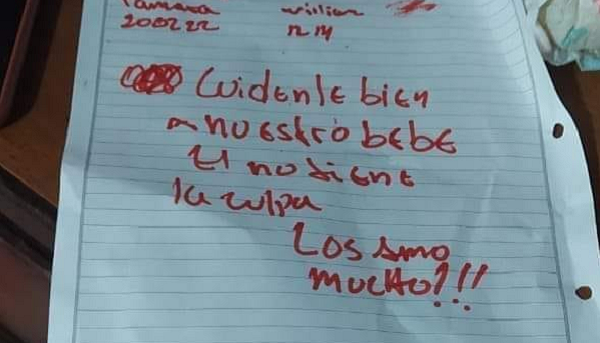 200222
Cuidenle bien
a nuestro bebe
El no tiene
la culpa
Los amo
mucho!!!